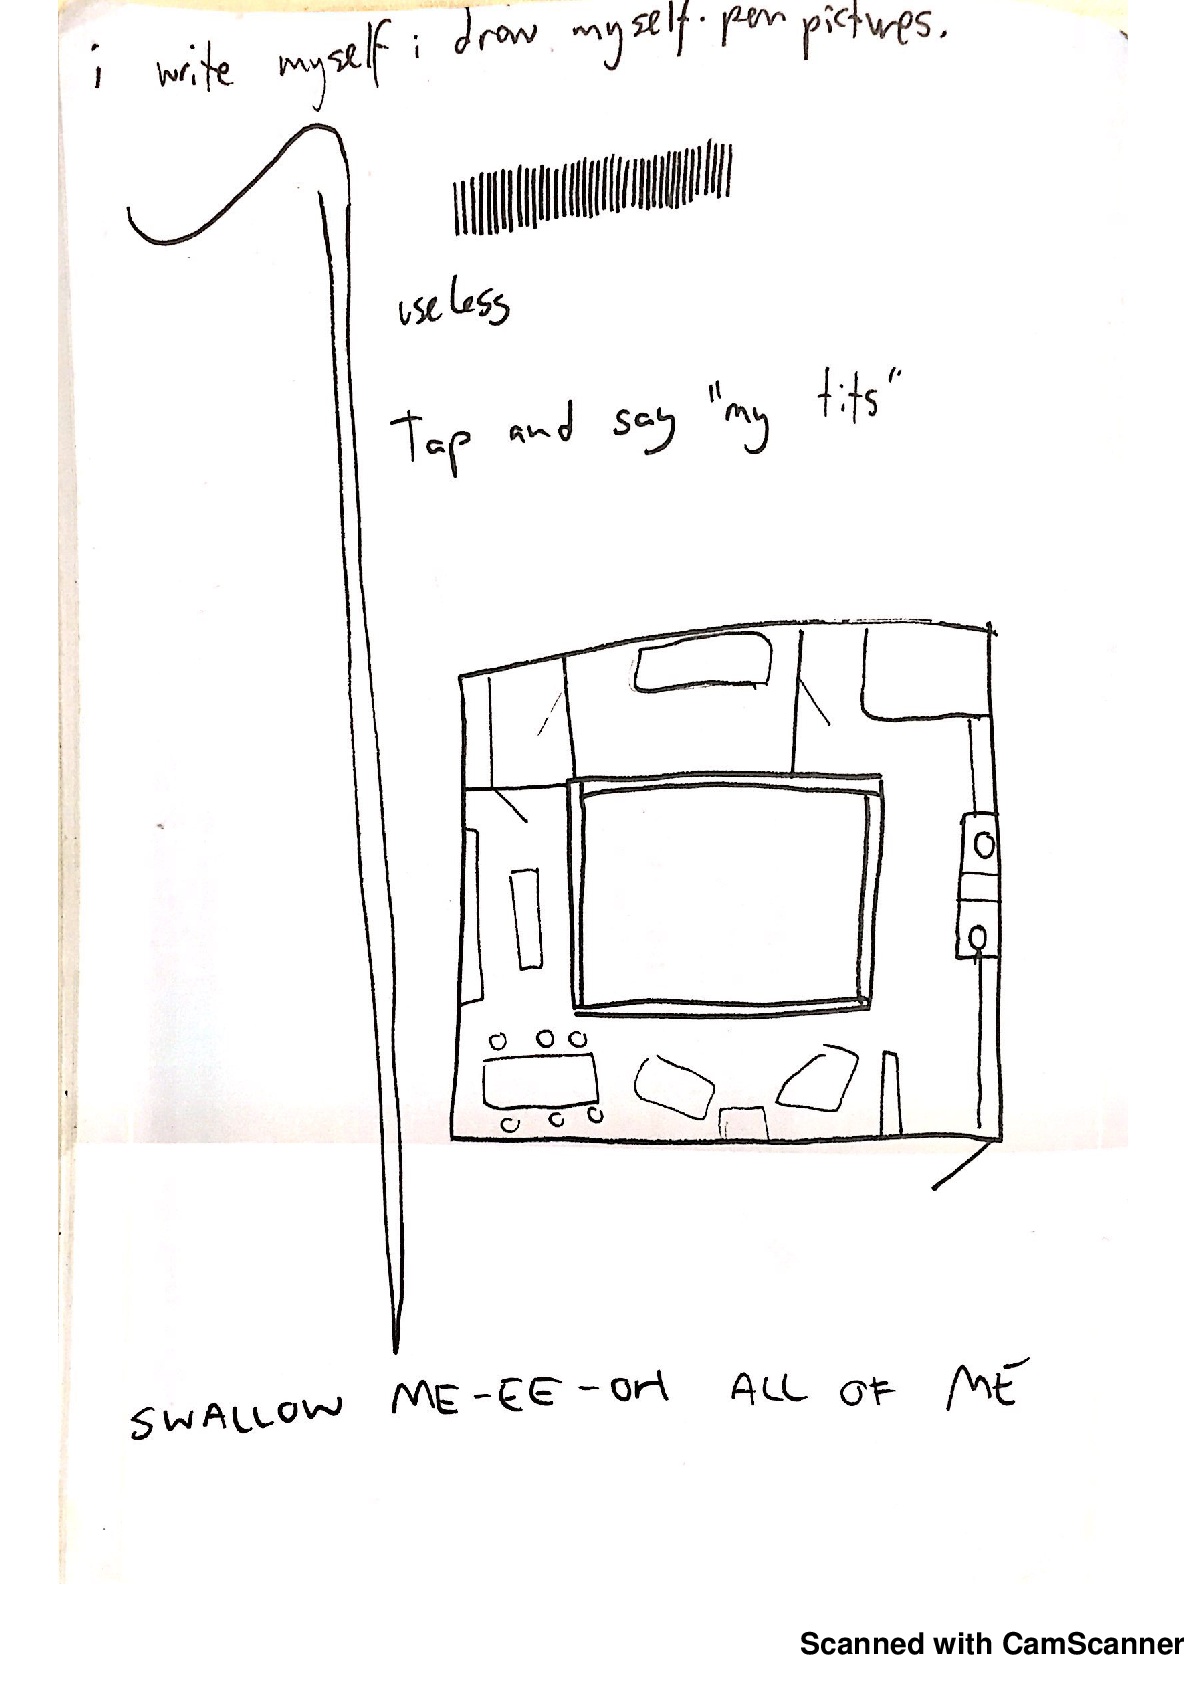 i write myself i draw myself. pen pictures.
useless
Tap and say "my tits"
SWALLOW ME-EE-OH ALL OF ME
Scanned with CamScanner